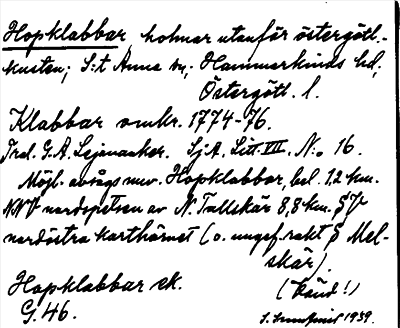 Hopklabbar, holmar utanför östergötl.-
kusten; S:t Anna sn; Hammarkinds hd,
Östergötl. l.
Klabbar omkr. 1774-76.
Trol. G. A. Lejonancker. SjA, Litt. VII. No 16.
Möjl. avågs nuv. Hopklabbar, bel. 1,2 km.
NNV nordspetsen av N. Tallskär 8,8 km. SV
nordöstra karthörnet (o. ungef. rakt S Mel-
skär).
Hopklabbar ek. (känd!)
G. 46.
1939.